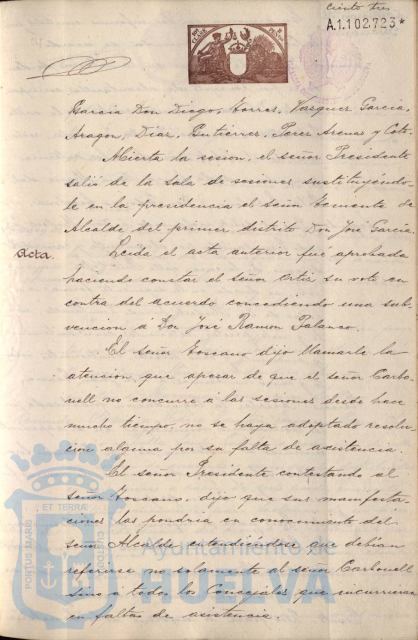 Ciento tres
A.1.102.723*
Garcia Don Diago, Torres, Vazquez Garcia,
Aragon, Diaz, Gutierrez, Perez Arenas y Coto.
Abierta la sesion, el señor Presidente
salió de la Sala de sesiones sustituyéndo-
le en la presidencia el señor Teniente de
Alcalde del primer distrito Don José Garcia.
Acta.
Leida el acta anterior fué aprobada
haciendo constar el señor Ortiz su voto en
contra del acuerdo concediendo una sub-
vencion a Don José Ramon Palanco.
El señor Toscano dijo llamarle la
atencion que apesar de que el señor Carbo-
nell no concurre á las sesiones desde hace
mucho tiempo, no se haya adoptado resolu-
cion alguna por su falta de asistencia.
El señor Presidente contestando al
señor Toscano, dijo que sus manifesta-
ciones las pondria en conocimiento del
señor Alcalde entendiendose que debian
referirse no solamente al señor Carbonell
sino a todos los Concejales que incurrieran
en faltas de asistencia.
PORTUS MARIS
ET TERRÆ
CUSTODIA
Ayuntamiento de
HUELVA